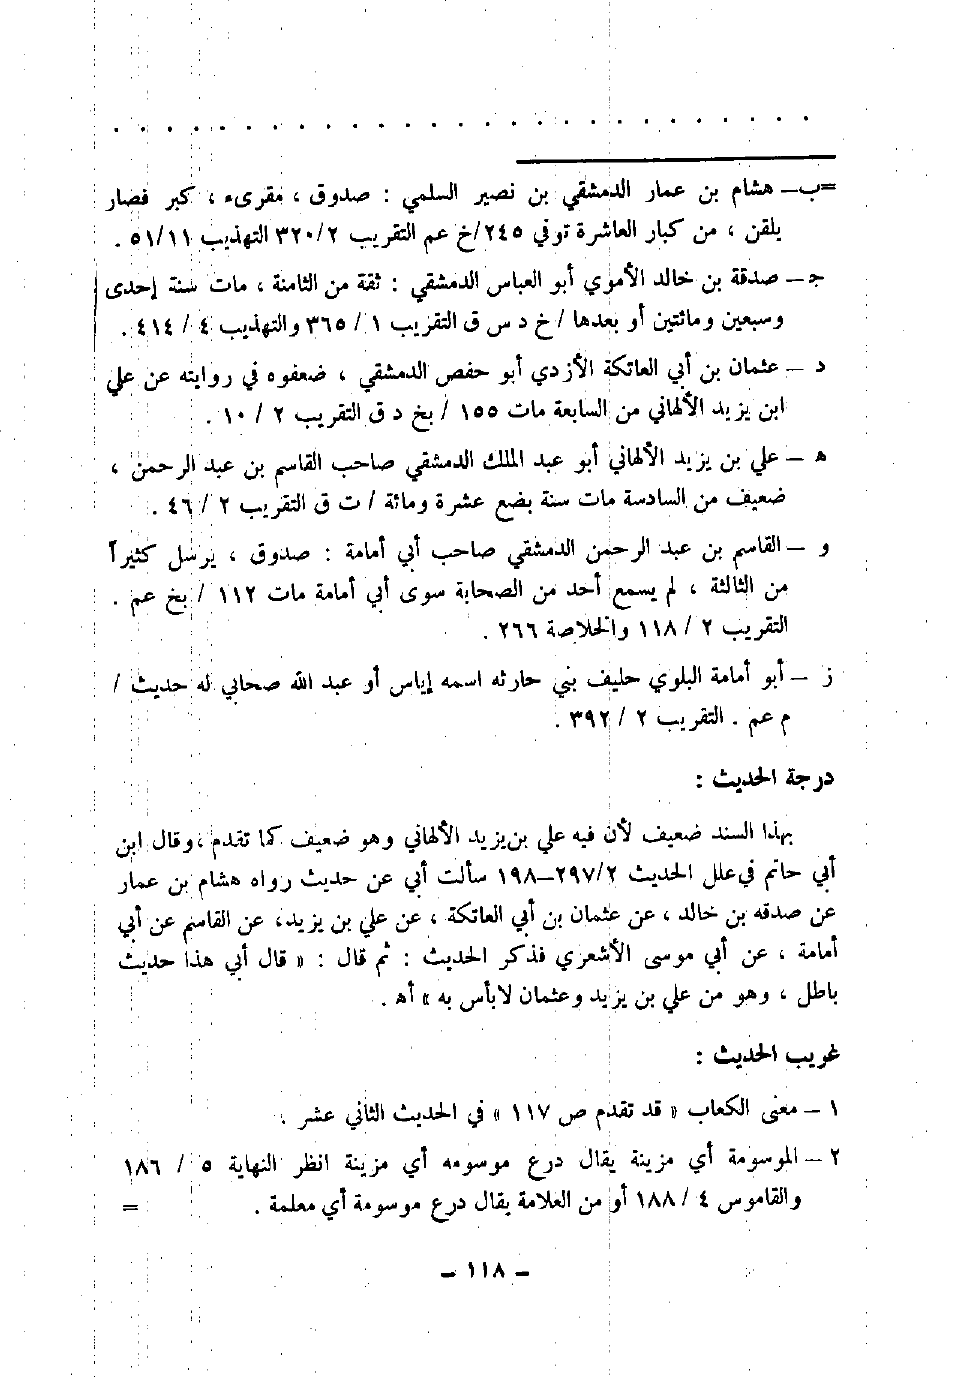 . . . . . . . . . . . . . . . . . . . . . . . . . . .
=ب ــ هشام بن عمار الدمشقي بن نصير السلمي : صدوق ، مقرىء ، كبر فصار
يلقن ، من كبار العاشرة توفي ٢٤٥/خ عم التقريب ٣٢٠/٢ التهذيب ٥١/١١ .
جـ ــ صدقة بن خالد الأموي أبو العباس الدمشقي : ثقة من الثامنة ، مات سنة إحدى
وسبعين ومائتين أو بعدها / خ د س ق التقريب ١ / ٣٦٥ والتهذيب ٤ / ٤١٤ .
د ــ عثمان بن أبي العاتكة الأزدي أبو حفص الدمشقي ، ضعفوه في روايته عن علي
ابن يزيد الألهاني من السابعة مات ١٥٥ / بخ د ق التقريب ٢ / ١٠ .
هـ ــ علي بن يزيد الألهاني أبو عبد الملك الدمشقي صاحب القاسم بن عبد الرحمن ،
ضعيف من السادسة مات سنة بضع عشرة ومائة / ت ق التقريب ٢ / ٤٦ .
و ــ القاسم بن عبد الرحمن الدمشقي صاحب أبي أمامة : صدوق ، يرسل كثيراً
من الثالثة ، لم يسمع أحد من الصحابة سوى أبي أمامة مات ١١٢ / بخ عم .
التقريب ٢ / ١١٨ والخلاصة ٢٦٦ .
ز ــ أبو أمامة البلوي حليف بني حارثه اسمه إياس أو عبد الله صحابي له حديث /
م عم . التقريب ٢ / ٣٩٢ .
درجة الحديث :
بهذا السند ضعيف لأن فيه علي بن يزيد الألهاني وهو ضعيف كما تقدم ، وقال ابن
أبي حاتم في علل الحديث ٢٩٧/٢ــ١٩٨ سألت أبي عن حديث رواه هشام بن عمار
عن صدقه بن خالد ، عن عثمان بن أبي العاتكة ، عن علي بن يزيد ، عن القاسم عن أبي
أمامة ، عن أبي موسى الأشعري فذكر الحديث : ثم قال : « قال أبي هذا حديث
باطل ، وهو من علي بن يزيد وعثمان لابأس به » أهـ .
غريب الحديث :
١ ــ معنى الكعاب « قد تقدم ص ١١٧ » في الحديث الثاني عشر .
٢ ــ الموسومة أي مزينة يقال درع موسومه أي مزينة انظر النهاية ٥ / ١٨٦
والقاموس ٤ / ١٨٨ أو من العلامة يقال درع موسومة أي معلمة . =
ــ ١١٨ ــ